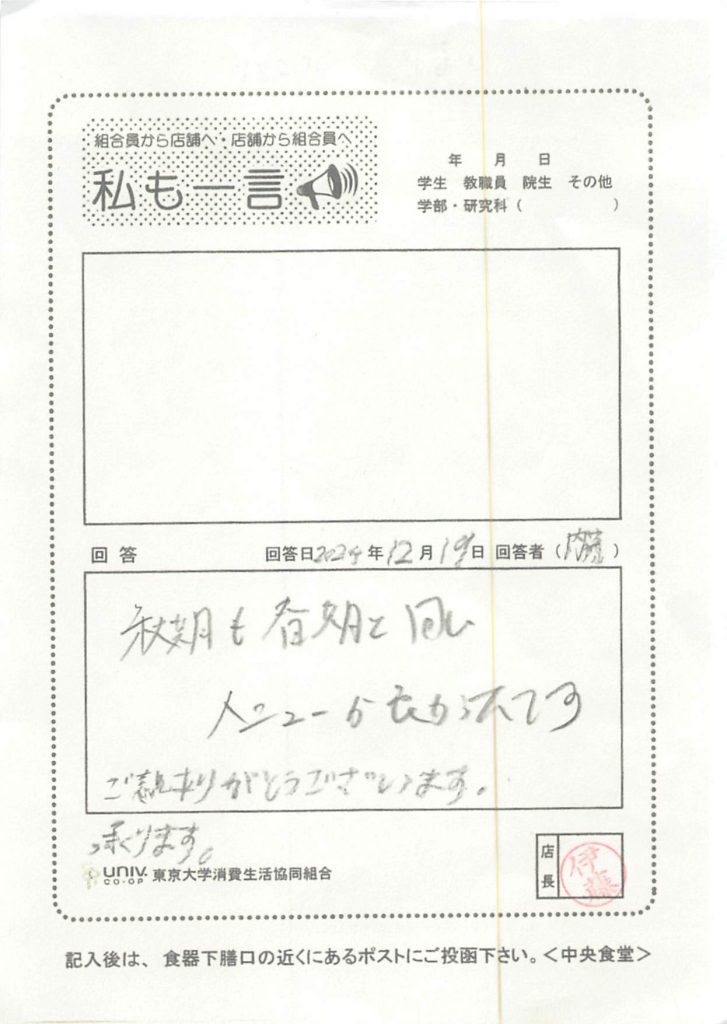 組合員から店舗へ・店舗から組合員へ
私も一言
年 月 日
学生 教職員 院生 その他
学部・研究科（ ）
回答 回答日2024年12月19日 回答者（内藤）
秋期も春期と同じ
メニューが
です
ありがとうございます。
承ります。
UNIV. CO-OP 東京大学消費生活協同組合
店長 伊藤
記入後は、食器下膳口の近くにあるポストにご投函下さい。＜中央食堂＞